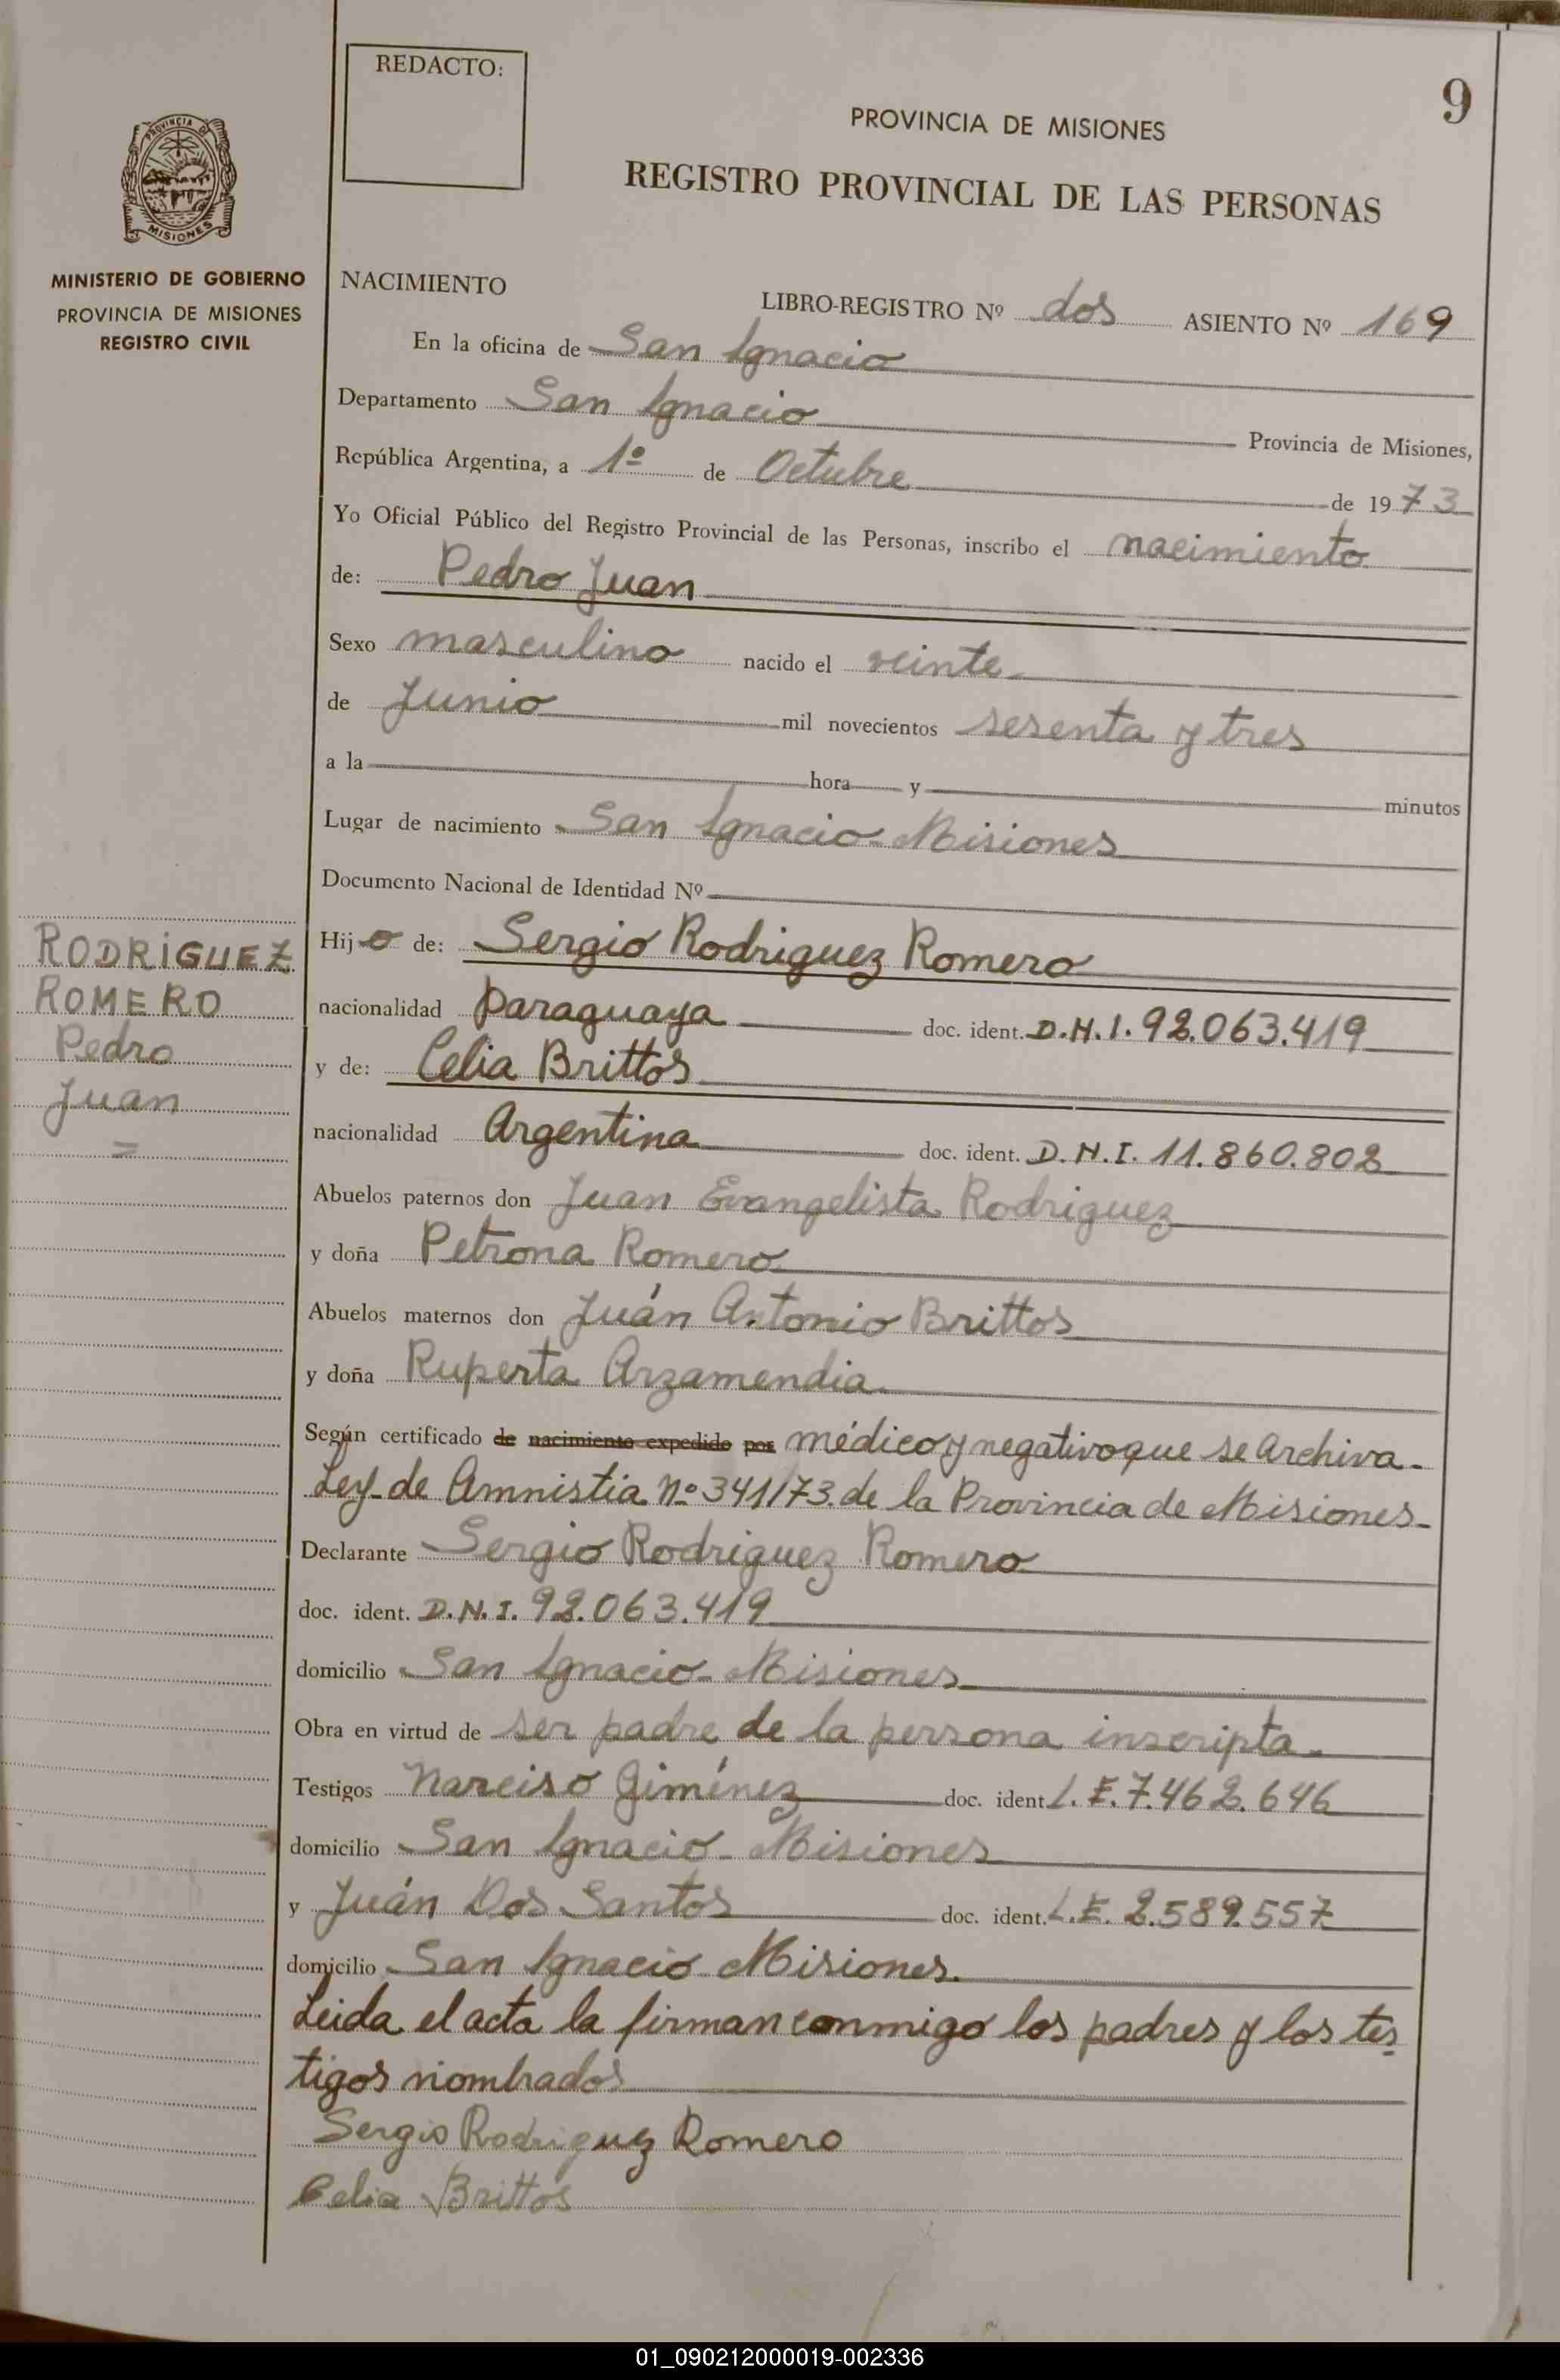 REDACTO:
9
PROVINCIA DE MISIONES
REGISTRO PROVINCIAL DE LAS PERSONAS
PROVINCIA DE
MISIONES
MINISTERIO DE GOBIERNO
PROVINCIA DE MISIONES
REGISTRO CIVIL
NACIMIENTO
LIBRO-REGISTRO Nº dos ASIENTO Nº 169
En la oficina de San Ignacio
Departamento San Ignacio Provincia de Misiones,
República Argentina, a 1º de Octubre de 1973
Yo Oficial Público del Registro Provincial de las Personas, inscribo el nacimiento
de: Pedro Juan
Sexo masculino nacido el veinte
de Junio mil novecientos sesenta y tres
a la hora y minutos
Lugar de nacimiento San Ignacio-Misiones
Documento Nacional de Identidad Nº
RODRIGUEZ
ROMERO
Pedro
Juan
=
Hijo de: Sergio Rodriguez Romero
nacionalidad Paraguaya doc. ident. D.N.I. 92.063.419
y de: Celia Brittos
nacionalidad Argentina doc. ident. D.N.I. 11.860.802
Abuelos paternos don Juan Evangelista Rodriguez
y doña Petrona Romero
Abuelos maternos don Juán Antonio Brittos
y doña Ruperta Arzamendia
Según certificado de nacimiento expedido por médico y negativo que se archiva-
Ley-de Amnistia Nº 341/73 de la Provincia de Misiones-
Declarante Sergio Rodriguez Romero
doc. ident. D.N.I. 92.063.419
domicilio San Ignacio-Misiones
Obra en virtud de ser padre de la persona inscripta
Testigos Narciso Giménez doc. ident. L.E. 7.462.646
domicilio San Ignacio-Misiones
y Juán Dos Santos doc. ident. L.E. 2.589.557
domicilio San Ignacio Misiones.
Leida el acta la firman conmigo los padres y los tes
tigos nombrados
Sergio Rodriguez Romero
Celia Brittos
01_090212000019-002336